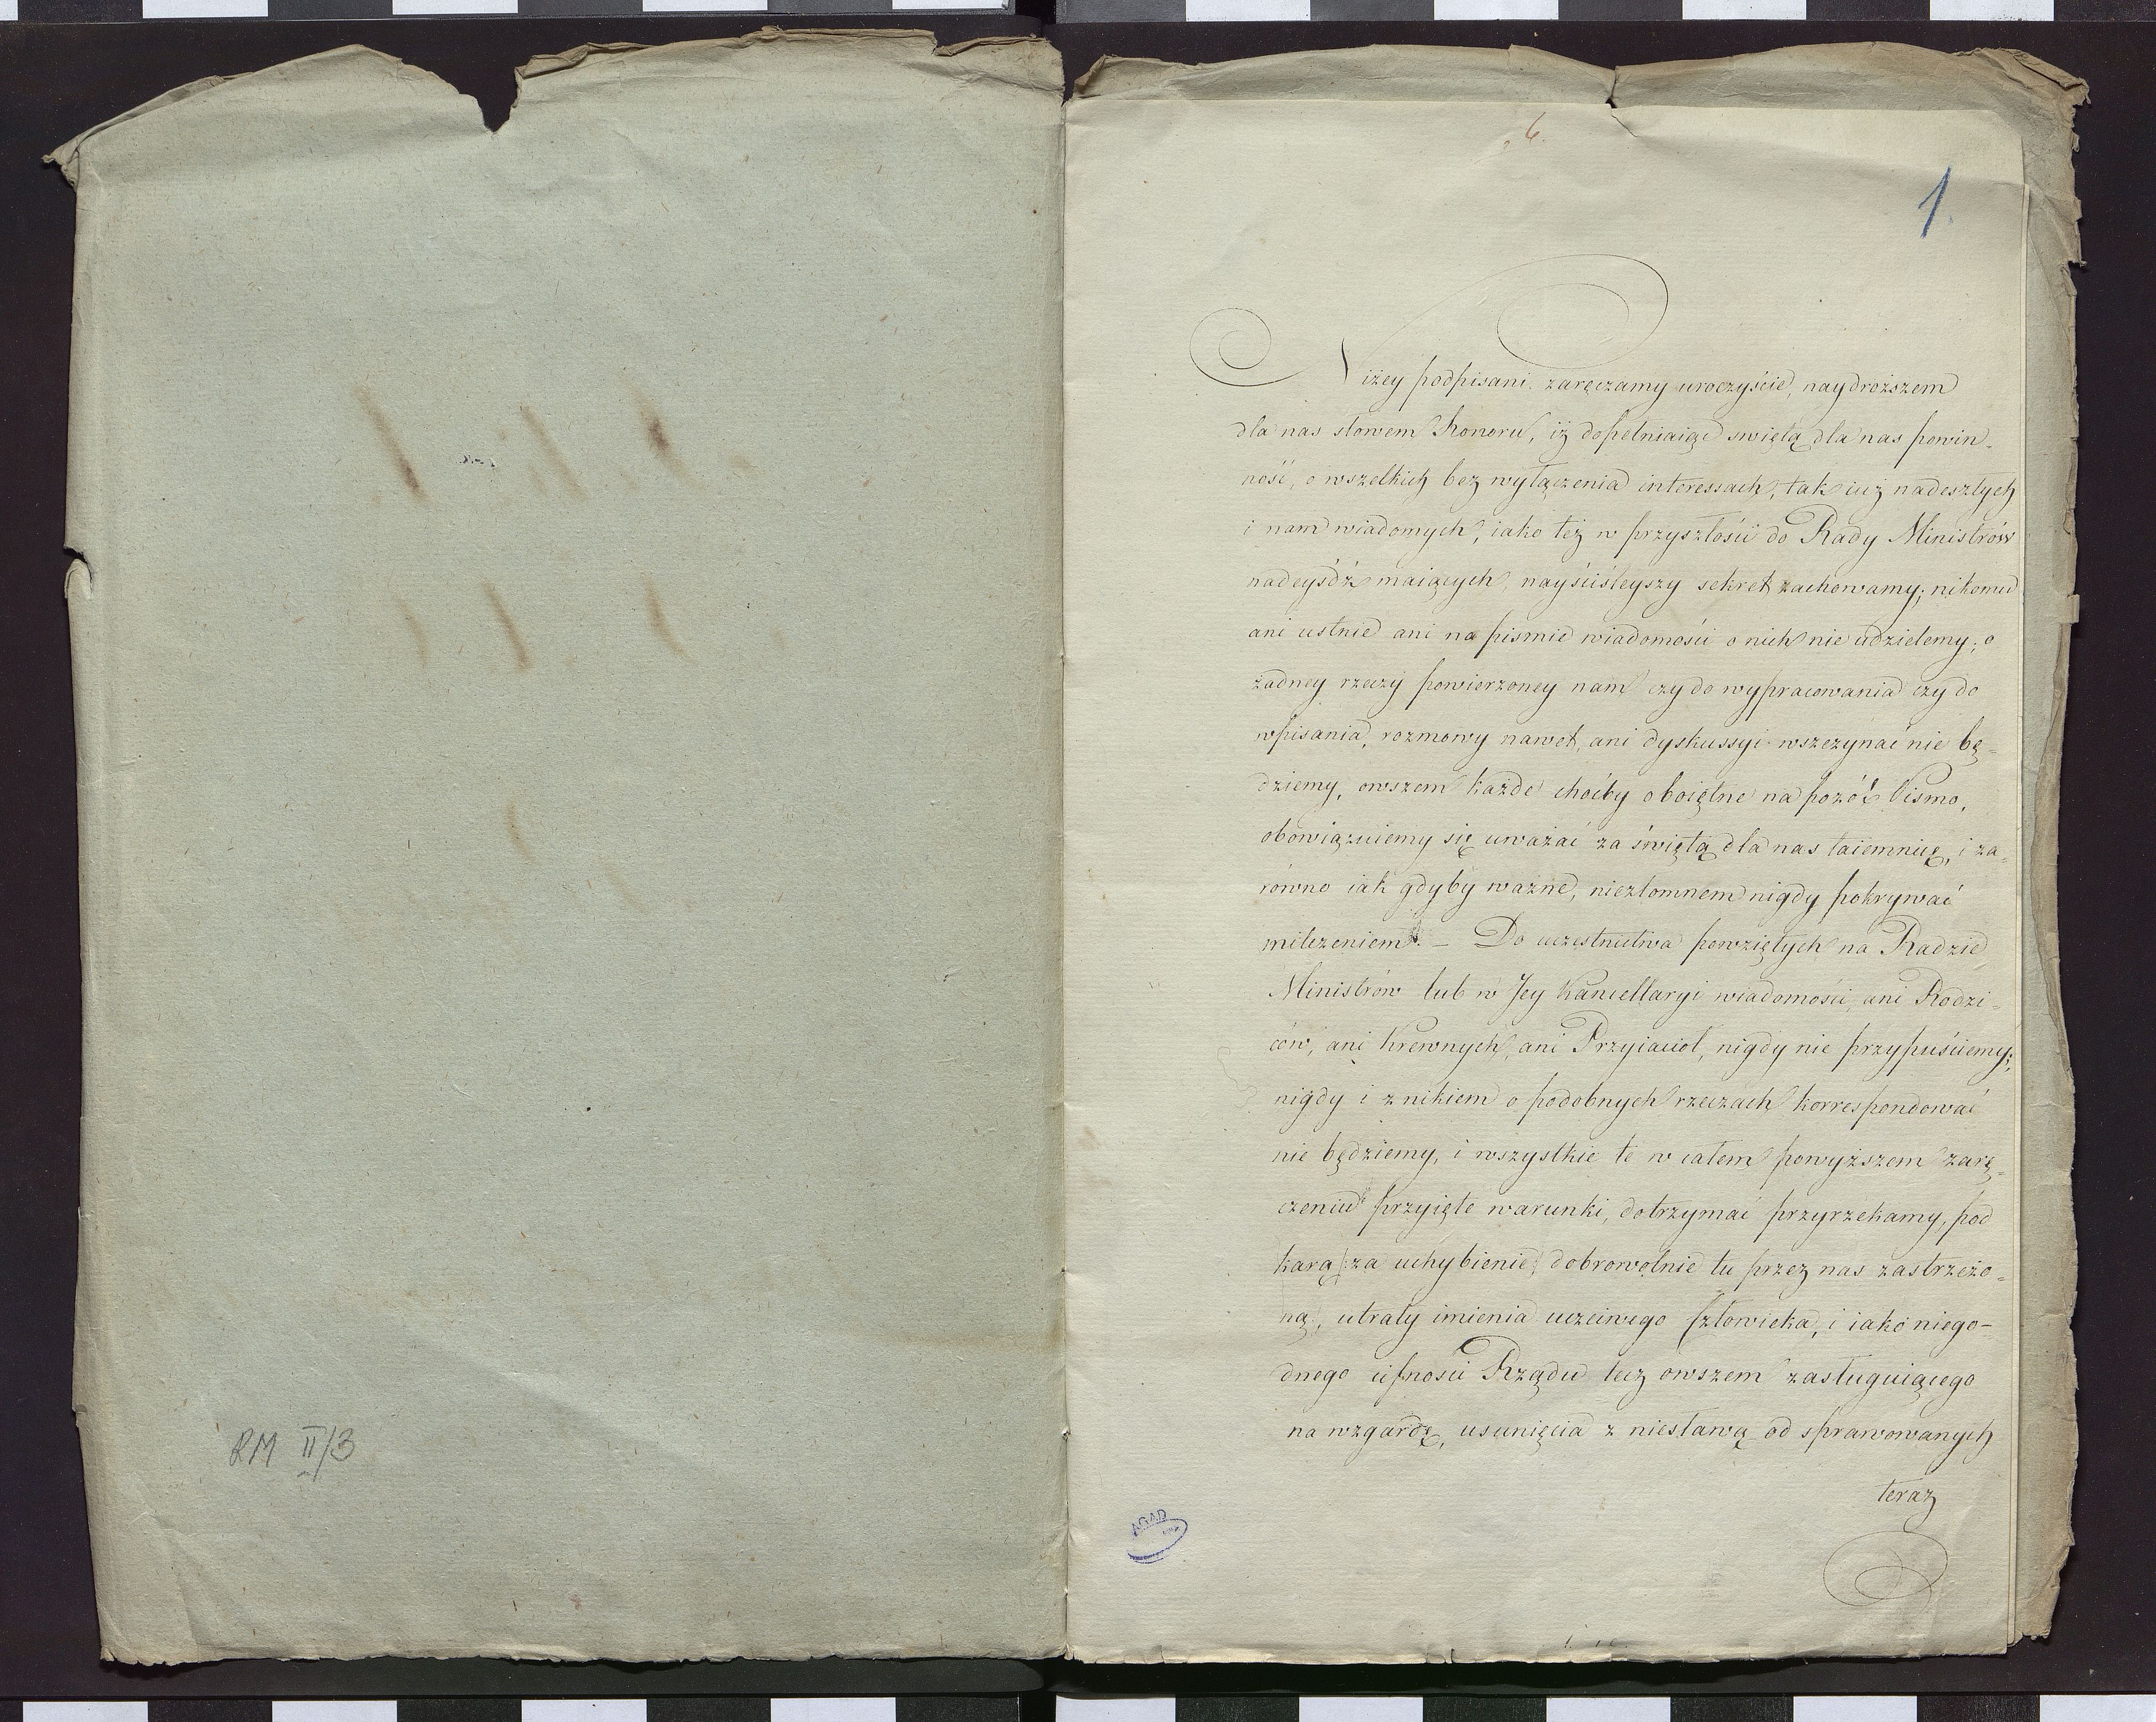 RM II/3
6.
1.
Niżey podpisani zaręczamy uroczyście, naydroższem
dla nas słowem Honoru, iż dopełniaiąc swiętą dla nas powin-
ność, o wszelkich bez wyłączenia interessach, tak iuż nadeszłych
i nam wiadomych, iako też w przyszłości do Rady Ministrów
nadeyśdź maiących, nayściśleyszy sekret zachowamy; nikomu
ani ustnie ani na pismie wiadomości o nich nie udzielemy; o
żadney rzeczy powierzoney nam czy do wypracowania czy do
wpisania, rozmowy nawet, ani dyskussyi wszczynać nie bę-
dziemy, owszem każde choćby oboiętne na pozór Pismo,
obowiązuiemy się uważać za świętą dla nas taiemnicę, i za-
równo iak gdyby ważne, niezłomnem nigdy pokrywać
milczeniem. – Do uczestnictwa powziętych na Radzie
Ministrów lub w Jey Kancellaryi wiadomości, ani Rodzi-
ców, ani Krewnych, ani Przyiaciół, nigdy nie przypuściemy;
nigdy i z nikiem o podobnych rzeczach korrespondować
nie będziemy, i wszystkie te w całem powyższem zarę-
czeniu przyięte warunki, dotrzymać przyrzekamy, pod
karą (za uchybienie) dobrowolnie tu przez nas zastrzeżo-
ną, utraty imienia uczciwego Człowieka, i iako niego-
dnego ufności Rządu lecz owszem zasługuiącego
na wzgardę, usunięcia z niesławą od sprawowanych
teraz
AGAD